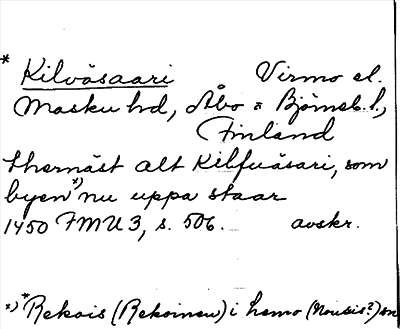 * Kilvåsaari Virmo el.
Masku hd, Åbo o Björneb. l.,
Finland
thernäst alt Kilfuåsari, som
byen *) nu uppa staar
1450 FMU 3, s. 506. avskr.
*) *Rekois (Rekoinen) i Lemo (Nousis?) sn